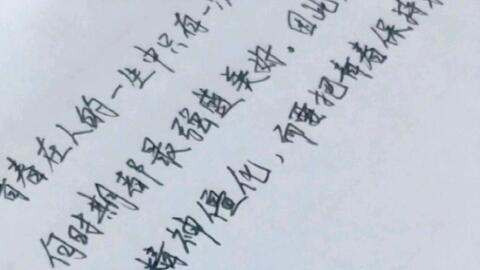 青春在人的一生中只有一次
何时期都最强盛美好。因此
精神僵化，而要把青春保持